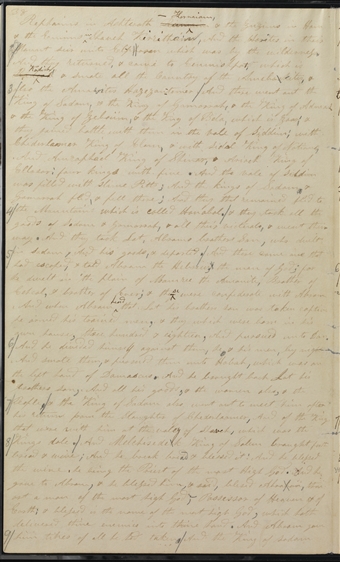 Rephaims in Ashteroth & the Zuzims in Ham
& the Emmims
unto El Paran which was by the wilderness
And they returned, & came to Enmishpat, which is
Kadesh & smote all the Country of the Amalekites, &
And there went out the
King of Sodom, & the King of Gomorrah, & the King of Admah
& the King of Zeboiim, & the King of Bela, which is Zoar, &
they joined battle with them in the vale of Siddim; with
King of Elam, & with Tidal King of Nations,
and Amraphael King of Shinar, & Arioch King of
Ellasar; four kings with five. And the vale of Siddim
was filled with Slime Pitts; And the kings of Sodom &
Gomorrah fled, & fell there; And they that remained fled to
the Mountain which is called & they took all the
goods of Sodom & Gomorrah, & all their victuals, & went their
way. And they took Lot, Abrams brothers Son, who dwelt
in Sodom, And his goods, & departed. And there came one that
had escaped, & told Abram the Hebrew, the man of God; for
he dwelt in the plains of Mamre the Amorite, brother of
Eshcol, & brother of Aner; & these were confederate with Abram
And when Abram heard that Lot his brother Son was taken captive
he armed his trained men, & they which were born in his
house, three hundred & eighteen, And pursued unto Dan.
And he divided himself against them, he & his men, by night
And smote them, & pursued them unto Hobah, which was on
the left hand of Damascus. And he brought back Lot his
brothers Son, And all his goods, & the women also, & the
& the King of Sodom also went out to meet him after
his return from the Slaughter of And of the Kings
that were with him at the valley of Shaveh, which was the
Kings dale. And Melchizedek King of Salem brought forth
bread & wine; And he break bread & blest it; And he blest
the wine he being the Priest of the most high God. And he
gave to Abram, & he blessed him, & said, blessed Abram, thou
art a man of the most high God, Possessor of Heaven & of
Earth; & blessed is the name of the most high God, which hath
delivered thine enemies into thine hand. And Abram gave
him tithes of all he took. And the King of Sodom